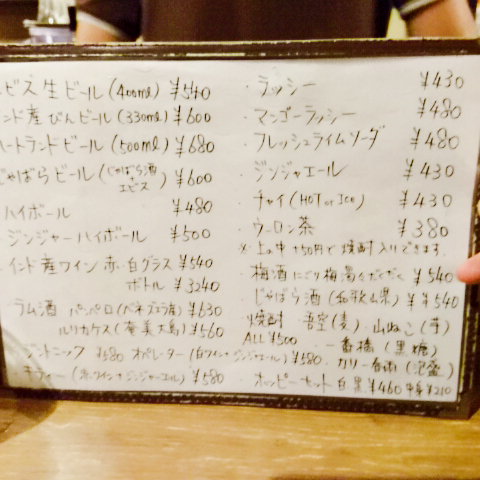 ビス生ビール(400ml) ¥540
ンド産びんビール(330ml) ¥600
ハートランドビール(500ml) ¥680
じゃばらビール(じゃばら酒+エビス) ¥600
ハイボール ¥480
ジンジャーハイボール ¥500
インド産ワイン 赤・白グラス ¥540
ボトル ¥3240
ラム酒 パンペロ(ベネズエラ産) ¥630
ルリカケス(奄美大島) ¥560
ジントニック ¥580 オペレーター(白ワイン+ジンジャエール) ¥580
キティー(赤ワイン+ジンジャーエール) ¥580
・ラッシー ¥430
・マンゴーラッシー ¥480
・フレッシュライムソーダ ¥480
・ジンジャエール ¥430
・チャイ(HOT or ICE) ¥430
・ウーロン茶 ¥380
※上の中+50円で焼酎入りできます。
・梅酒 にごり梅 ¥540
・じゃばら酒(和歌山県) ¥540
・焼酎・吾空(麦)・山ねこ(芋)
ALL ¥500 ・一番橋(黒糖)
・カリー春雨(泡盛)
・ホッピーセット 白 黒 ¥460 中身 ¥210